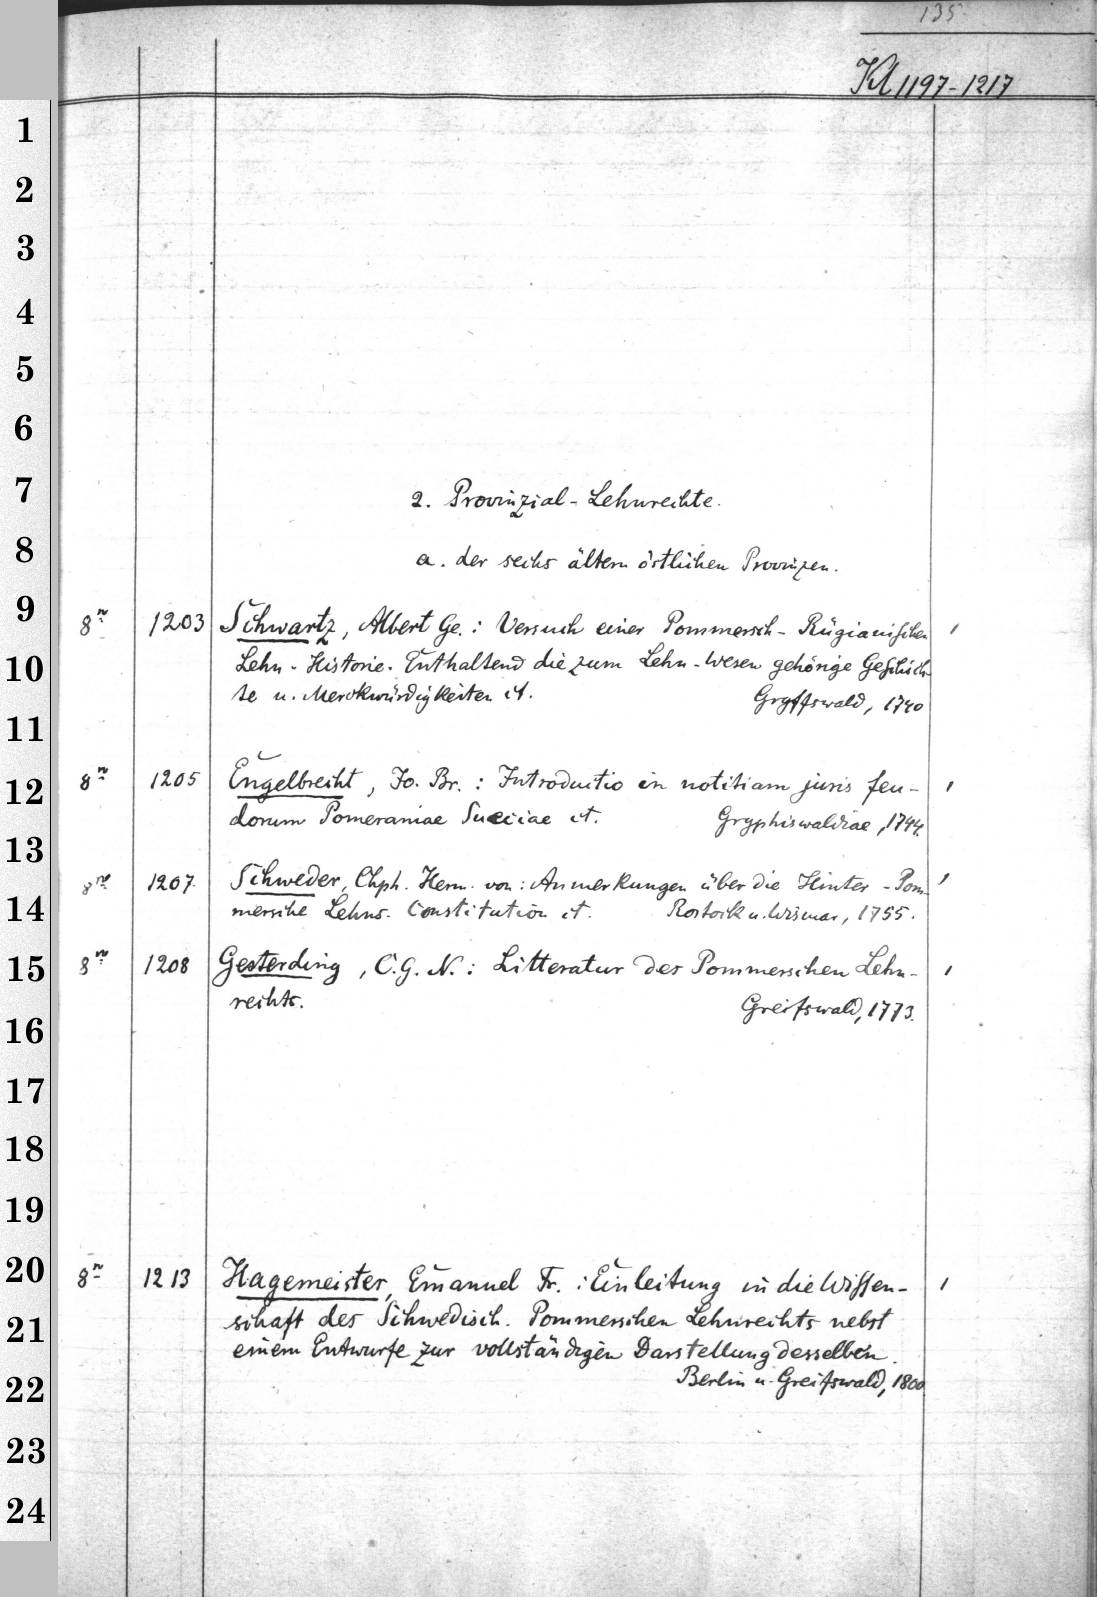 135
Kl 1197-1217
1
2
3
4
5
6
7
8
9
10
11
12
13
14
15
16
17
18
19
20
21
22
23
24
2. Provinzial-Lehnrechte.
a. der sechs ältern östlichen Provinzen.
8n 1203 Schwartz, Albert Ge.: Versuch einer Pommersch-Rügianischen
Lehn-Historie. Enthaltend die zum Lehn-Wesen gehörige Geschich-
te u. Merckwürdigkeiten et. Gryffswald, 1740
8n 1205 Engelbrecht, Jo. Br.: Introductio in notitiam juris feu-
dorum Pomeraniae Sueciae et. Gryphiswaldiae, 1744.
8n 1207. Schweder, Chph. Herm. von: Anmerkungen über die Hinter-Pom-
mersche Lehns-Constitution et. Rostock u. Wismar, 1755.
8n 1208 Gesterding, C. G. N.: Litteratur des Pommerschen Lehn-
rechts. Greifswald, 1773.
8n 1213 Hagemeister, Emanuel Fr.: Einleitung in die Wissen-
schaft des Schwedisch. Pommerschen Lehnrechts nebst
einem Entwurfe zur vollständigen Darstellung desselben.
Berlin u. Greifswald, 1800